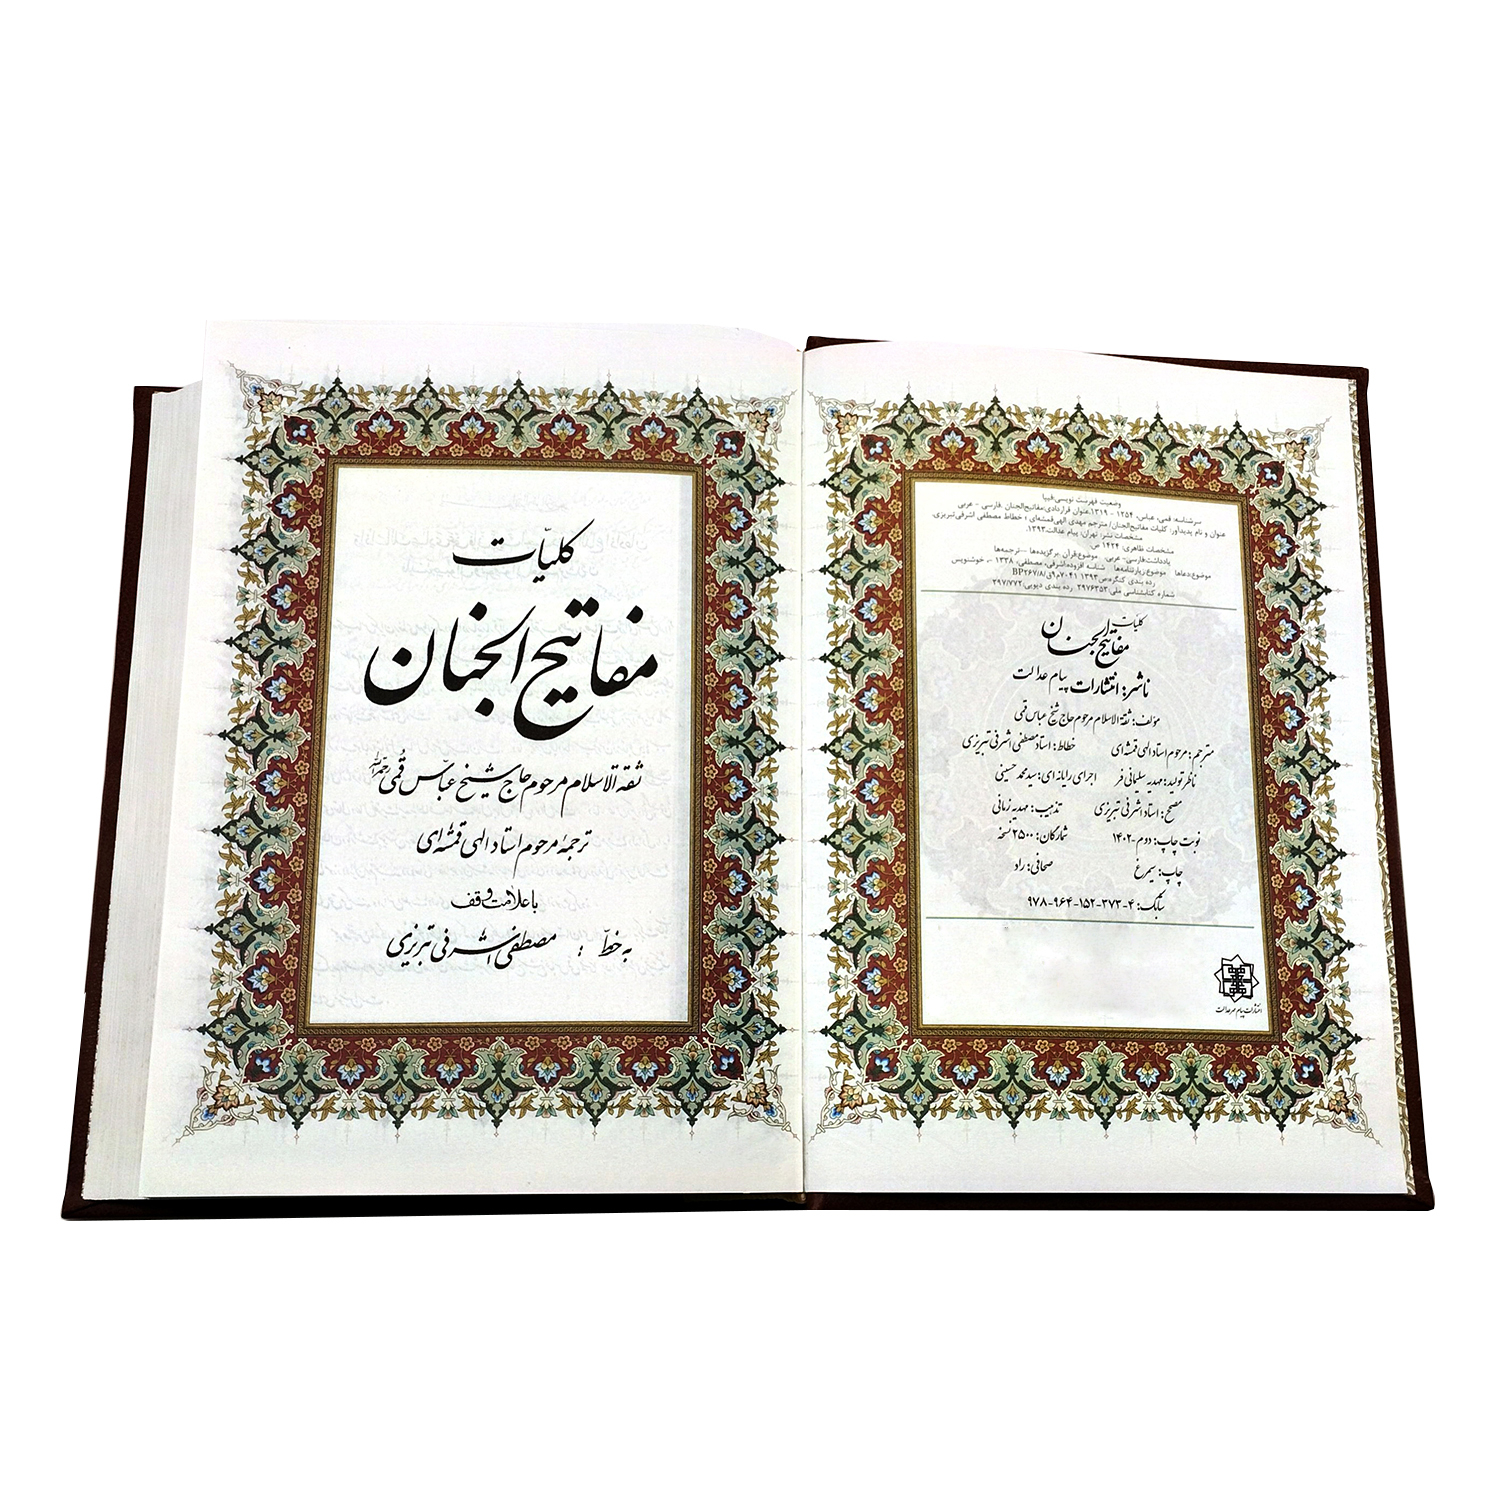 وضعیت فهرست نویسی:فیپا
سرشناسه: قمی، عباس، ۱۲۵۴ - ۱۳۱۹.عنوان قراردادی:مفاتیح‌الجنان .فارسی - عربی
عنوان و نام پدیدآور: کلیات مفاتیح‌الجنان/ مترجم مهدی الهی‌قمشه‌ای ؛ خطاط مصطفی اشرفی‌تبریزی.
مشخصات نشر: تهران: پیام عدالت،۱۳۹۳.
مشخصات ظاهری: ۱۴۲۴ ص.
یادداشت:فارسی- عربی. موضوع:قرآن برگزیده‌ها --ترجمه‌ها
موضوع:دعاها موضوع:زیارتنامه‌ها شناسه افزوده:اشرفی، مصطفی، ۱۳۳۸ -، خوشنویس
رده بندی کنگره:
شماره کتابشناسی ملی: ۲۹۷۶۳۵۳ رده بندی دیویی:۲۹۷/۷۷۲
کلیات
مفاتیح الجنان
ناشر: انتشارات پیام عدالت
مؤلف: ثقة الاسلام مرحوم حاج شیخ عباس قمی
مترجم: مرحوم استاد الهی قمشه‌ای خطاط: استاد مصطفی اشرفی تبریزی
ناظر تولید: مهدیه سلیمانی فر اجرای رایانه ای: سید محمد حسینی
مصحح: استاد اشرفی تبریزی تذهیب: مهدیه زمانی
نوبت چاپ: دوم-۱۴۰۲ شمارگان: ۲۵۰۰ نسخه
چاپ: سیمرغ صحافی: راد
شابک: ۴-۳۷۳-۱۵۲-۹۶۴-۹۷۸
کلیّات
مفاتیح الجنان
ثقة الاسلام مرحوم حاج شیخ عبّاس قُمی رحمه الله
ترجمهٔ مرحوم استاد الهی قمشه‌ای
با علامت وقف
به خطّ : مصطفی اشرفی تبریزی